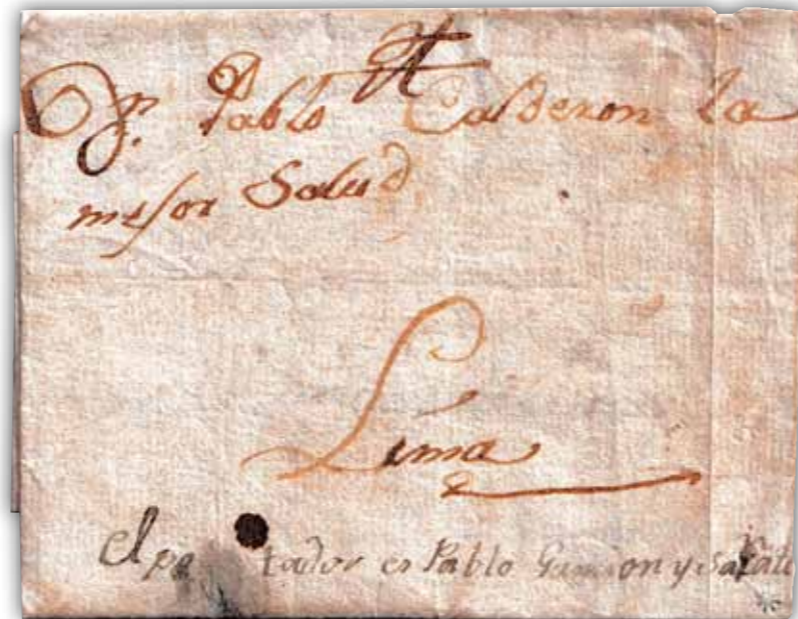 A
Dn. Pablo Calderon La
mejor Salud
Lima
el po tador es Pablo y